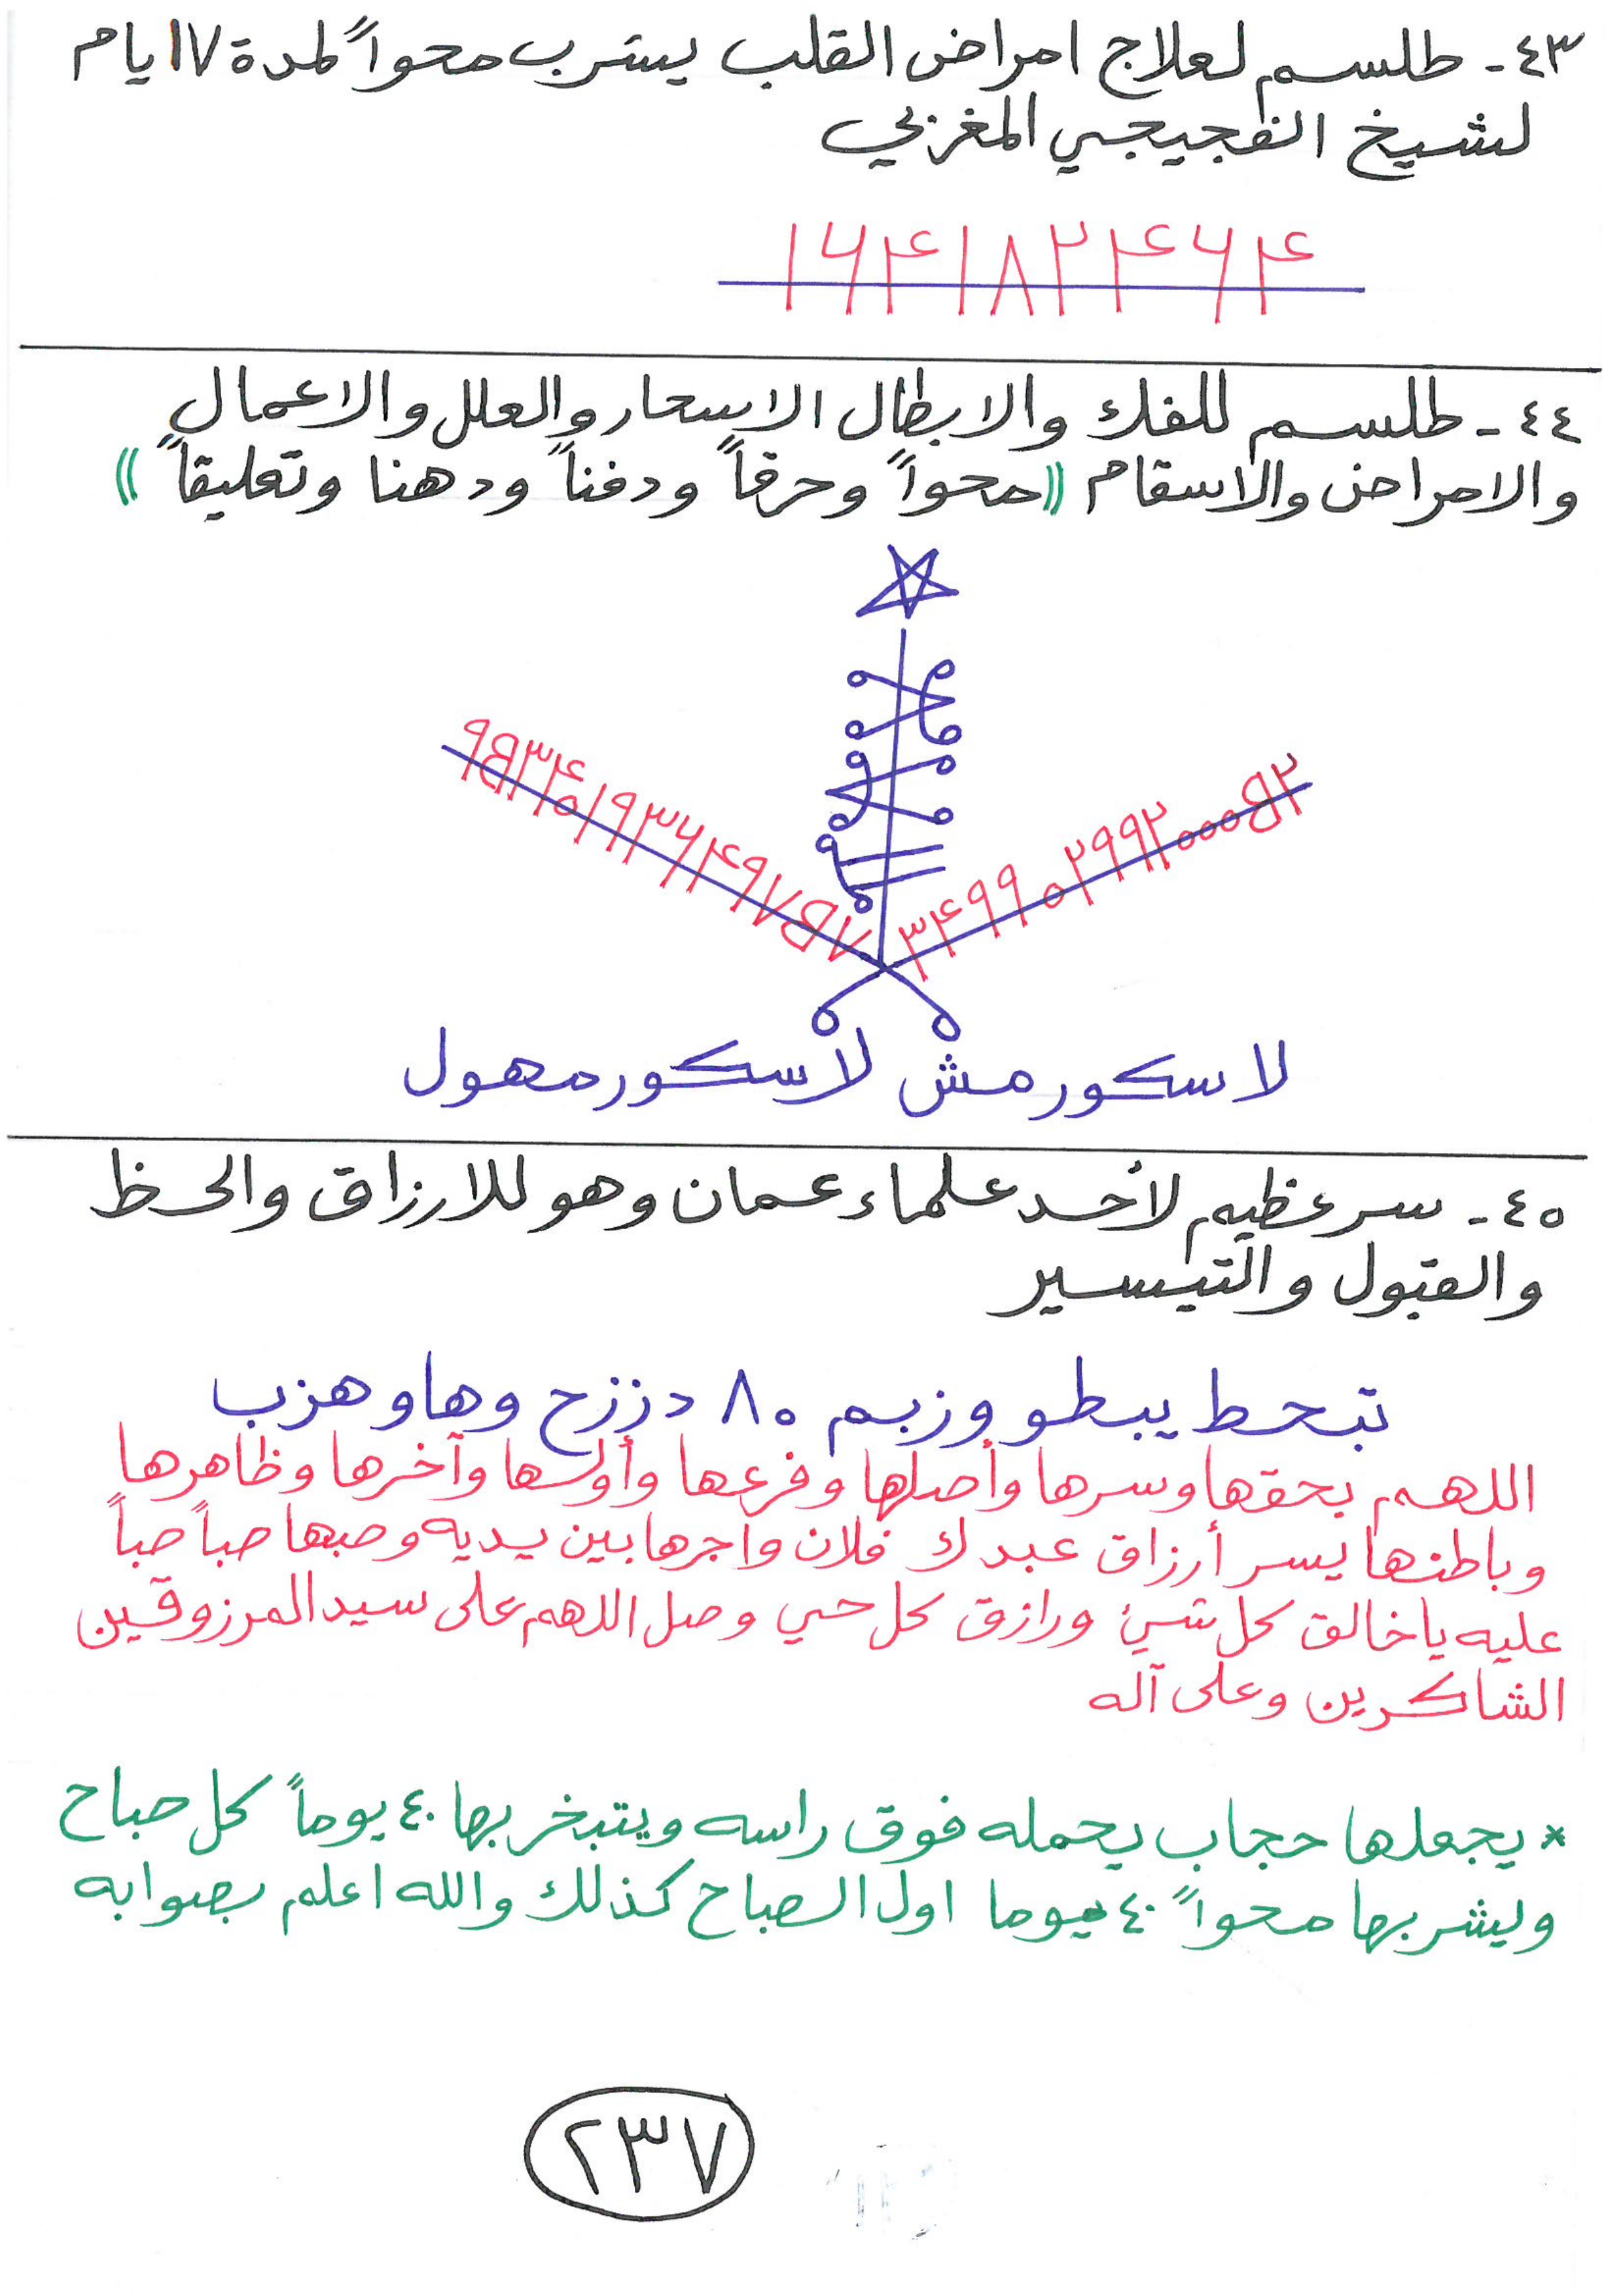 ٤٣ - طلسم لعلاج امراض القلب يشرب محواً لمدة ١٧ ايام
لشيخ الفجيجي المغربي
١٦۴١٨٢۴٦۴
٤٤ - طلسم للفك والابطال الاسحار والعلل والاعمال
والامراض والاسقام ((محواً وحرقاً ودفناً ودهنا وتعليقاً))
لاسكورمش لاسكورمهول
٤٥ - سر عظيم لأحد علماء عمان وهو للارزاق والحظ
والقبول والتيسير
تبحط يبطو وزبم ٨٠ دززح وهاوهزب
اللهم بحقها وسرها وأصلها وفرعها وأولها وآخرها وظاهرها
وباطنها يسر أرزاق عبدك فلان واجرها بين يديه وصبها صباً صباً
عليه ياخالق كل شيئ ورازق كل حي وصل اللهم على سيد المرزوقين
الشاكرين وعلى آله
* يجعلها حجاب يحمله فوق راسه ويتبخر بها ٤٠ يوماً كل صباح
ويشربها محواً ٤٠ يوما اول الصباح كذلك والله اعلم بصوابه
٢٣٧